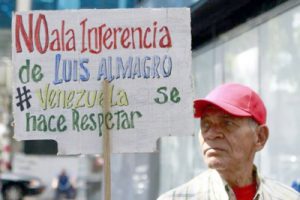 NO a la Injerencia
de LUIS ALMAGRO
#Venezuela se
hace Respetar